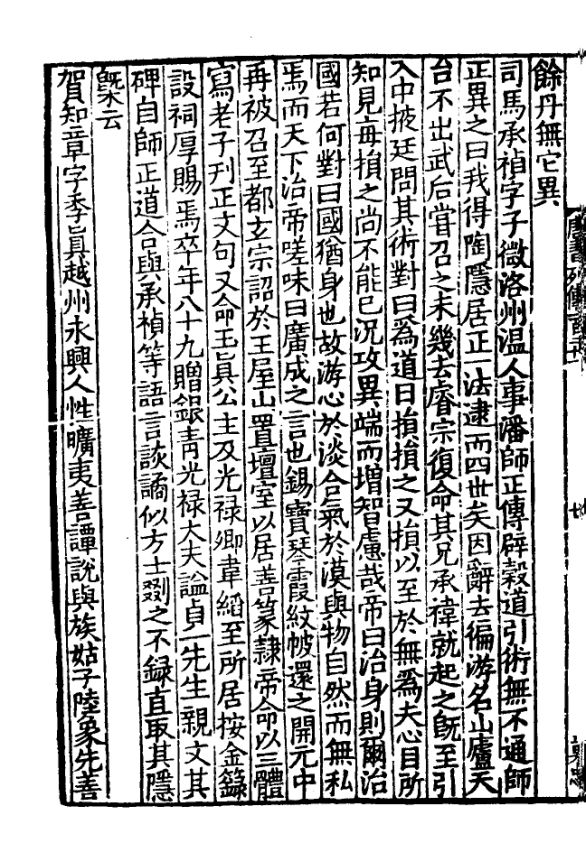 餘丹無它異
司馬承禎字子微洛州温人事潘師正傳辟穀道引術無不通師
正異之曰我得陶隱居正一法逮而四世矣因辭去徧游名山廬天
台不出武后嘗召之未幾去睿宗復命其兄承禕就起之旣至引
入中掖廷問其術對曰爲道日損損之又損以至於無爲夫心目所
知見每損之尚不能已況攻異端而增智慮哉帝曰治身則爾治
國若何對曰國猶身也故游心於淡合氣於漠與物自然而無私
焉而天下治帝嗟味曰廣成之言也錫寶琴霞紋帔還之開元中
再被召至都玄宗詔於王屋山置壇室以居善篆隸帝命以三體
寫老子刊正文句又命玉眞公主及光禄卿韋縚至所居按金籙
設祠厚賜焉卒年八十九贈銀青光禄大夫謚貞一先生親文其
碑自師正道合與承禎等語言詼譎似方士剟之不録直取其隱
槩云
賀知章字季眞越州永興人性曠夷善譚說與族姑子陸象先善